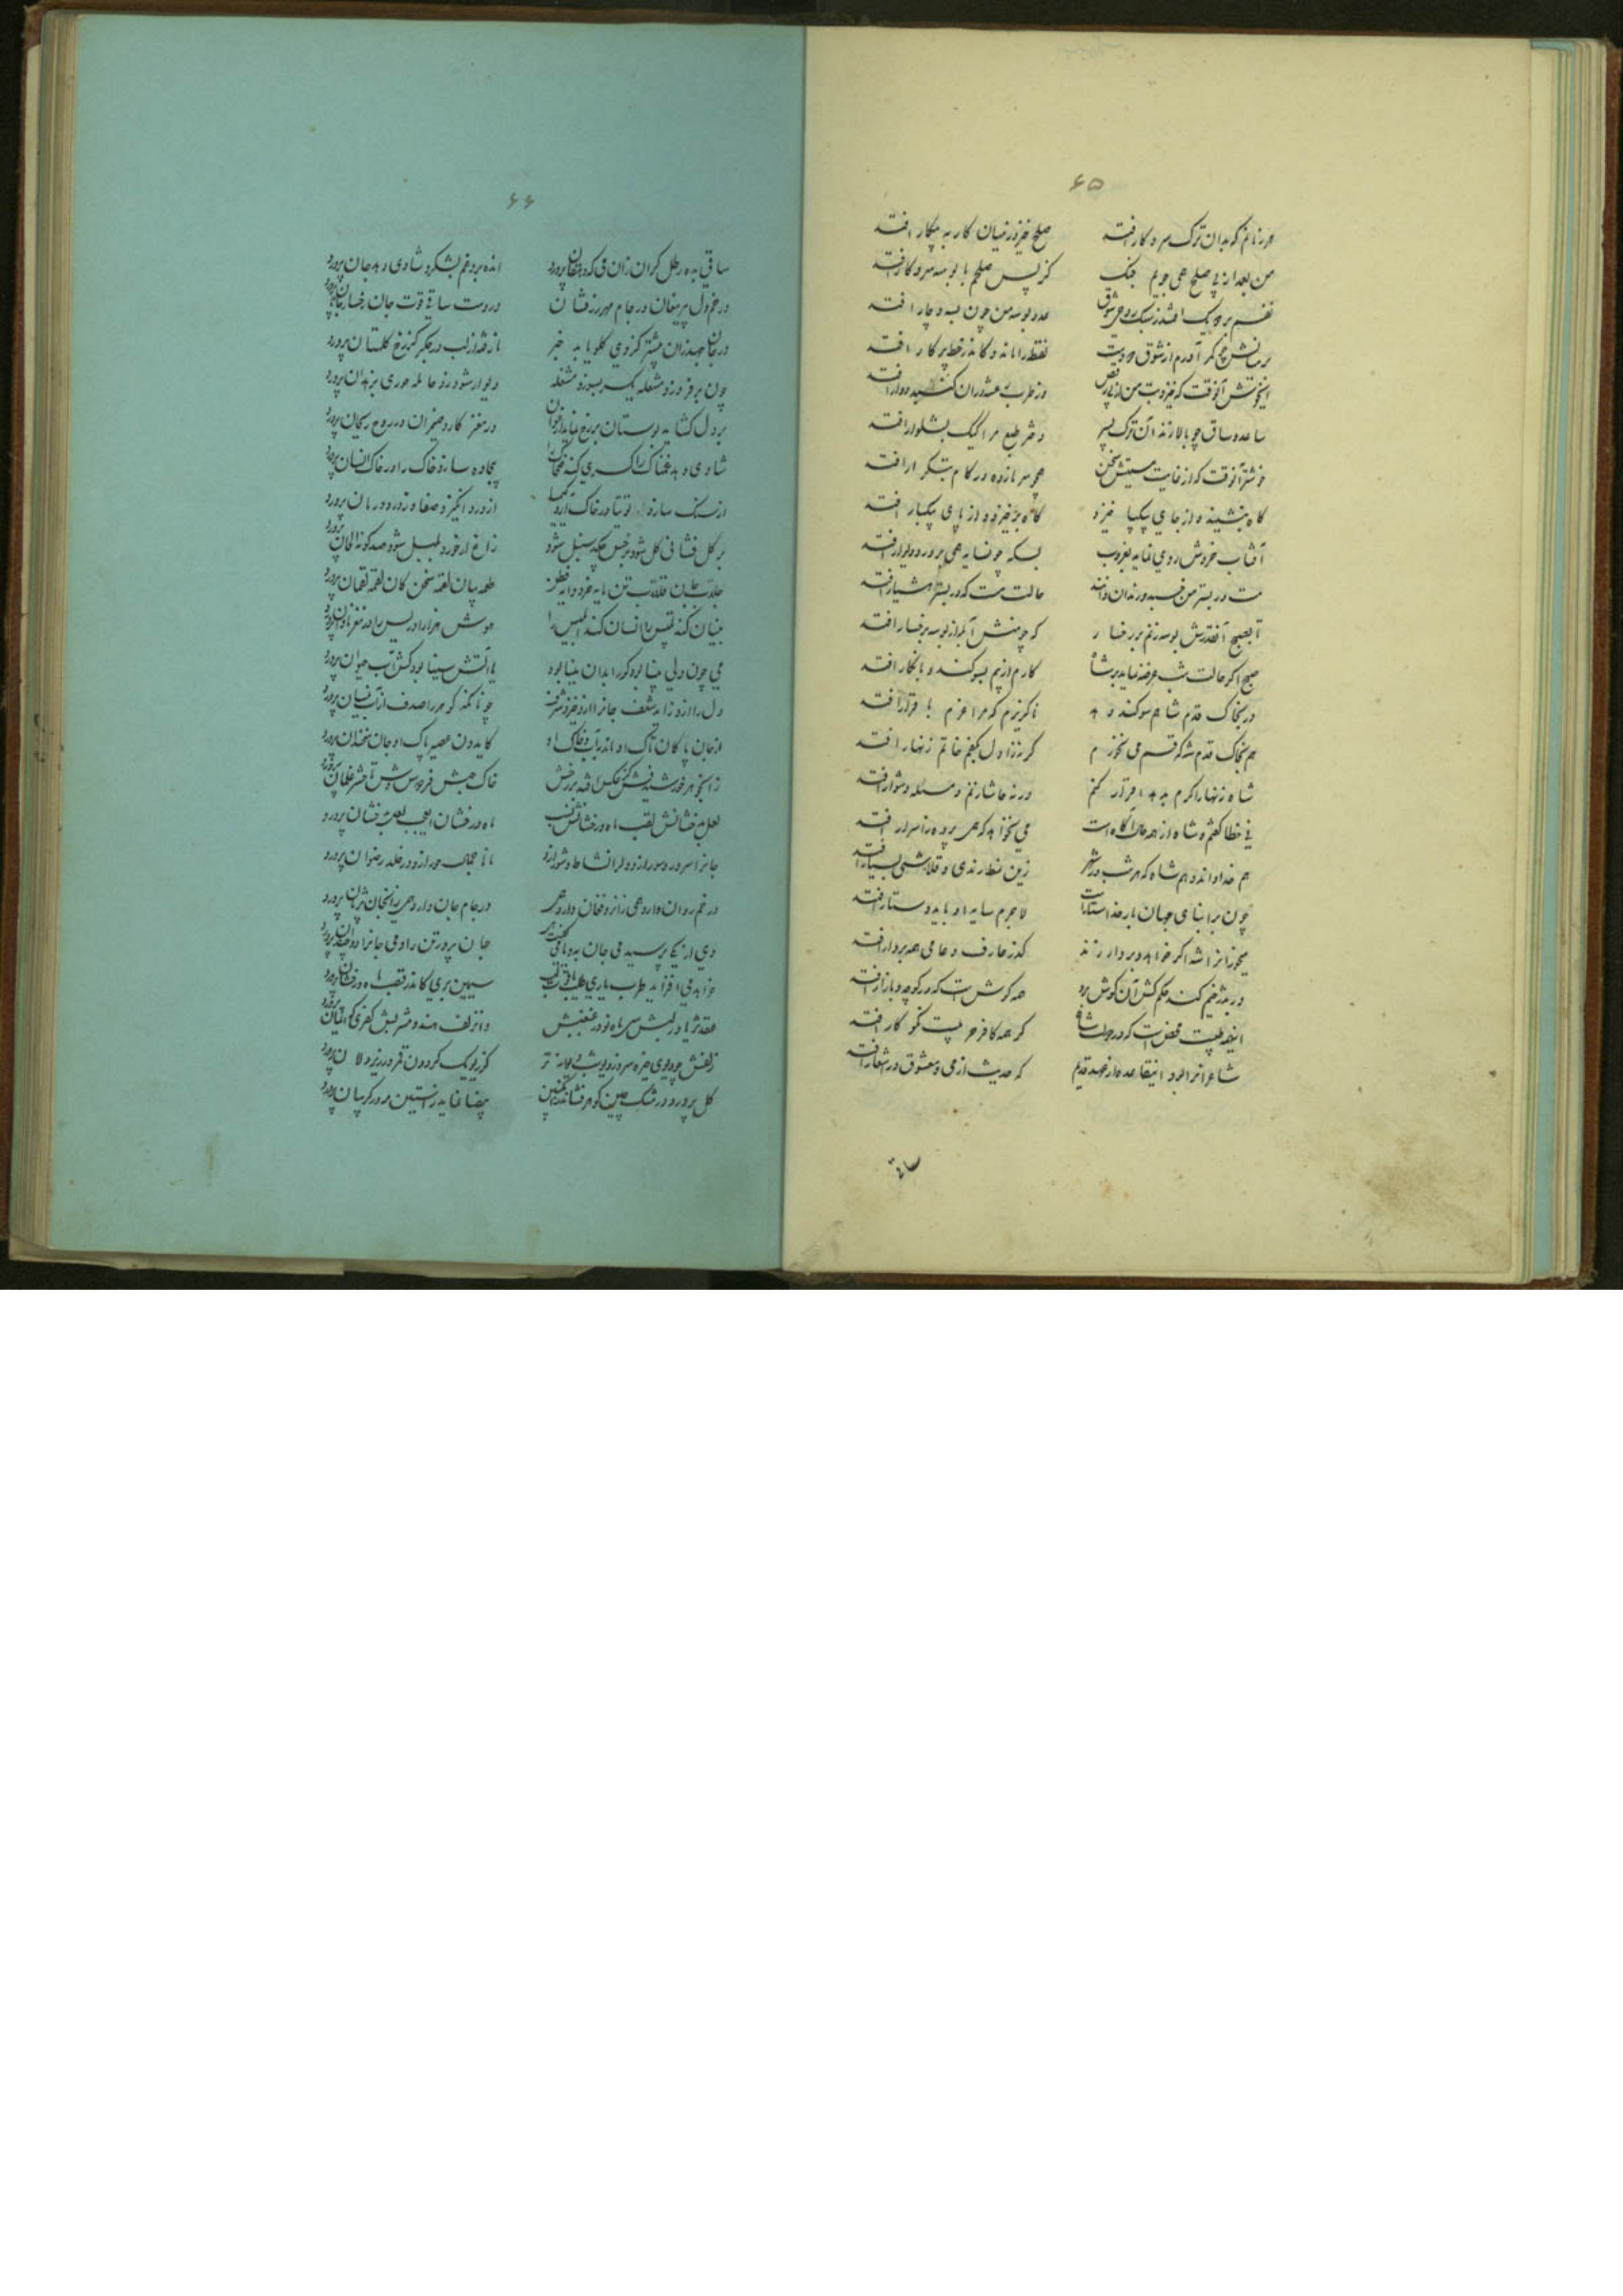 ۶۵
هر زمانم که بدان ترک سر و کار افتد صلح خیزد ز میان کار به پیکار افتد
من بعد از پی صلح همی جویم جنگ کز پس صلحم با بوسه سر و کار افتد
عدد بوسه من چون به دوچار افتد
بر میانش چو کمر آورم از شوق دو دست نقطه را ماند و کاندر خط پرکار افتد
ساعد و ساق چو بالا زند آن ترک پسر دختر طبع مرا کیک بشلوار افتد
خوشتر آنوقت که از غایت مستیش سخن همچو سر مازده در کام بتکرار افتد
گاه بنشیند و از جای بیکپا خیزد گاه برخیزد و از پای بیکبار افتد
آفتاب رخ وش روی نماید بغروب بسکه چون سایه همی بر در و دیوار افتد
مست در بستر من خسبد و رندان دانند حالت مست که در بستر هشیار افتد
تا بصبح آنقدرش بوسه زنم بر رخسار که چو منش آبله از بوسه برخسار افتد
صبح اگر حالت شب عرضه نماید بر شاه کارم از بیم بسوگند و بانکار افتد
ور بخاک قدم شاهم سوگند دهد ناگزیرم که مرا عزم باقرار افتد
هم بخاک قدم شه که قسم می نخورم گر ز زاول بکفم خاتم زنهار افتد
شاه زنهار اگرم بدهد اقرار کنم ورنه حاشا زنم و مسئله دشوار افتد
نی خطا گفتم و شاه از همه حال آگاه است می نخواهد که همی پرده ز اسرار افتد
هم خدا داند و هم شاه که هر شب در شهر زین نمط رندی و قلاشی بسیار افتد
چون بر ابنای جهان بار خدا ستار است لاجرم سایه او باید ستار افتد
میخوران را شه اگر خواهد بر دار زند گذر عارف و عامی همه بر دار افتد
ور بدژخیم کند حکم کش آن گوش برد همه گوش است که در کوچه و بازار افتد
که همه کافر حربیست نگو کار افتد
شاعران را بود این قاعده از عهد قدیم که حدیث از می و معشوق در اشعار افتد
ساقی
۶۶
ساقی بده رطل گران زان می که دهقان پرورد انده برد غم بشکرد شادی دهد جان پرورد
در خم دل پیر مغان در جام مهر زرفشان در دست ساقی قوت جان رخسار جانان پرورد
در جان جهد زان پیشتر کز وی گلو یابد خبر نارفته از لب در جگر کز رخ گلستان پرورد
چون برفروزد مشعله یکسر بسوزد مشغله دیوار شود زو حامله حوری بزهدان پرورد
بر دل گشاید بوستان بر رخ نماید ارغوان در مغز کارد ضیمران در روح ریحان پرورد
شادی دهد غمناک را کسری کند ضحاک را بیجاده سازد خاک را در خاک انسان پرورد
از سنگ سازد توتیا در خاک آرد کیمیا از درد انگیزد صفا وز درد درمان پرورد
بر گل فشانی گل شود بر خس چکد سنبل شود زاغ ار خورد بلبل شود صد گونه الحان پرورد
جلاب جان قلاب تن مایه خرد دایه فطن طعمه بیان لقمه سخن کان لقمه لقمان پرورد
می چون دلی بینا بود کور ابدان بینا بود یا آتش سینا بود کش آب حیوان پرورد
دل را ازو زاید شعف جان را ازو خیزد شرف چونانکه گوهر را صدف از آب نیسان پرورد
از جان پاکان تاک او اندر آب و خاک او کایدون عصیر پاک او جان سخندان پرورد
زآنجو هر خورشیدفش کز عکس او تبد بر رخش خاک حبش فردوس وش تا حشر غلمان پرورد
لعل بدخشانش لقب ماه درخشانش نسب ماه درخشان ایعجب لعل بدخشان پرورد
جان را سرور و سور ازو دل را نشاط و شور ازو مانا جمال حور ازو در خلد رضوان پرورد
در خم روان دارد همی زانرو فغان دارد همی در جام جان دارد همی زانجان پژمان پرورد
دی از یکی پرسید می جان به و یا می گفت هی جان پرورد تن را و می جان را دوچندان پرورد
خواهد می افزاید طرب یاری طلب یاقوت لب سیمین بری کاندر قصب ماه درخشان پرورد
عقد ثریا در لبش سی ماه نو در غبغبش وان زلف هندو مشربش کفری که ایمان پرورد
زلفش چو دیوی خیره سر وز دیو شب دیوانه تر کز ریو یک گردون قمر در زیر دامان پرورد
گل پرورد در مشک چین گوهر فشاند ز انگبین بیضا نماید ز آستین مه در گریبان پرورد